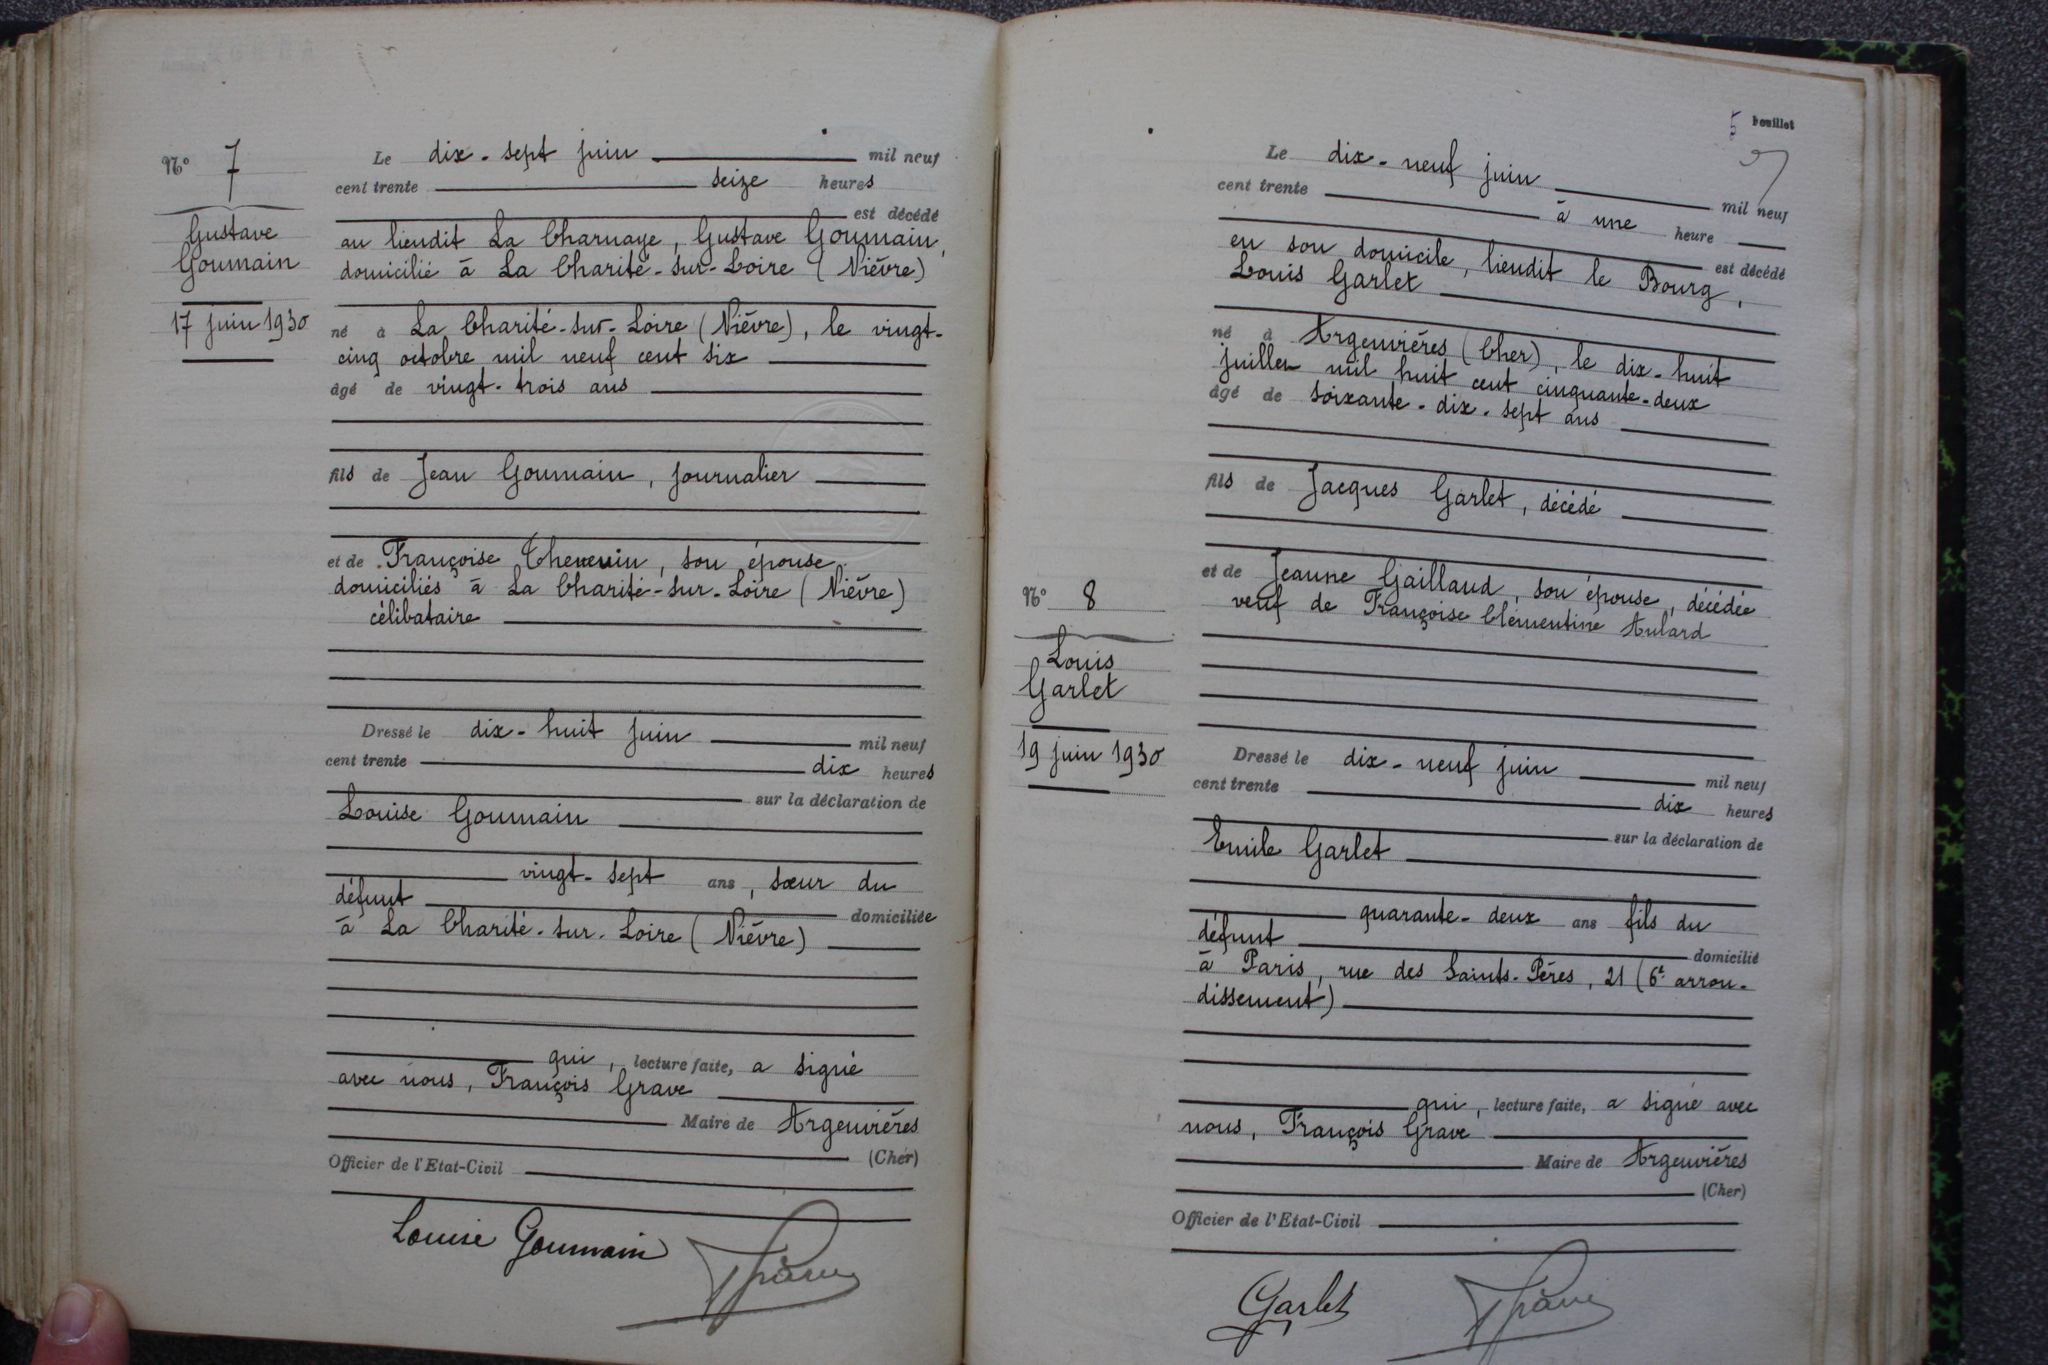 N° 7
Gustave
Goumain
17 juin 1930
Le dix-sept juin mil neuf
cent trente seize heures
est décédé
au lieudit La Charnaye, Gustave Goumain,
domicilié à La Charité-sur-Loire (Nièvre)
né à La Charité-sur-Loire (Nièvre), le vingt-
cinq octobre mil neuf cent six
âgé de vingt-trois ans
fils de Jean Goumain, journalier
et de Françoise Thevenin, son épouse
domiciliés à La Charité-sur-Loire (Nièvre)
célibataire
Dressé le dix-huit juin mil neuf
cent trente dix heures
sur la déclaration de
Louise Goumain
vingt-sept ans, sœur du
défunt domiciliée
à La Charité-sur-Loire (Nièvre)
qui, lecture faite, a signé
avec nous, François Grave
Maire de Argenvières
(Cher)
Officier de l'Etat-Civil
Louise Goumain
5 Feuillet
N° 8
Louis
Garlet
19 juin 1930
Le dix-neuf juin mil neuf
cent trente à une heure
est décédé
en son domicile, lieudit le Bourg,
Louis Garlet
né à Argenvières (Cher), le dix-huit
juillet mil huit cent cinquante-deux
âgé de soixante-dix-sept ans
fils de Jacques Garlet, décédé
et de Jeanne Gaillaud, son épouse, décédée
veuf de Françoise Clémentine Aulard
Dressé le dix-neuf juin mil neuf
cent trente dix heures
sur la déclaration de
Emile Garlet
quarante-deux ans fils du
défunt domicilié
à Paris, rue des Saints-Pères, 21 (6e arron-
dissement)
qui, lecture faite, a signé avec
nous, François Grave
Maire de Argenvières
(Cher)
Officier de l'Etat-Civil
Garlet